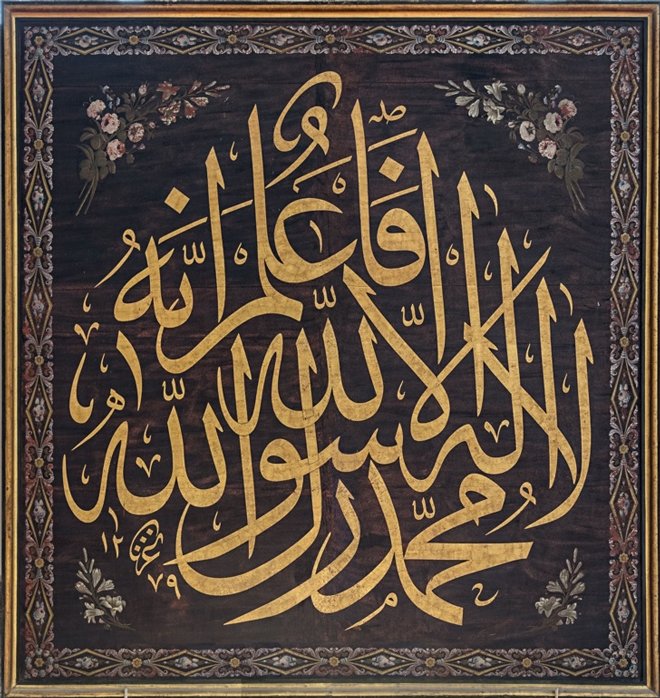 فَاعْلَمْ اَنَّهُ
لا اله الا الله
محمد رسول الله
١٢٧٩